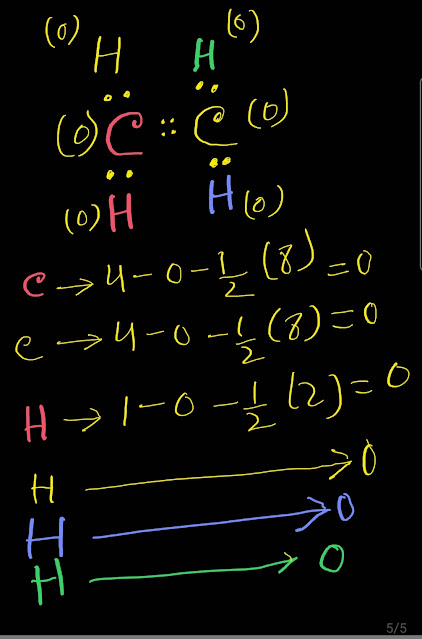 (0) H H (0)
(0) C :: C (0)
(0) H H (0)
C → 4 - 0 - 1/2 (8) = 0
C → 4 - 0 - 1/2 (8) = 0
H → 1 - 0 - 1/2 (2) = 0
H → 0
H → 0
H → 0
5/5